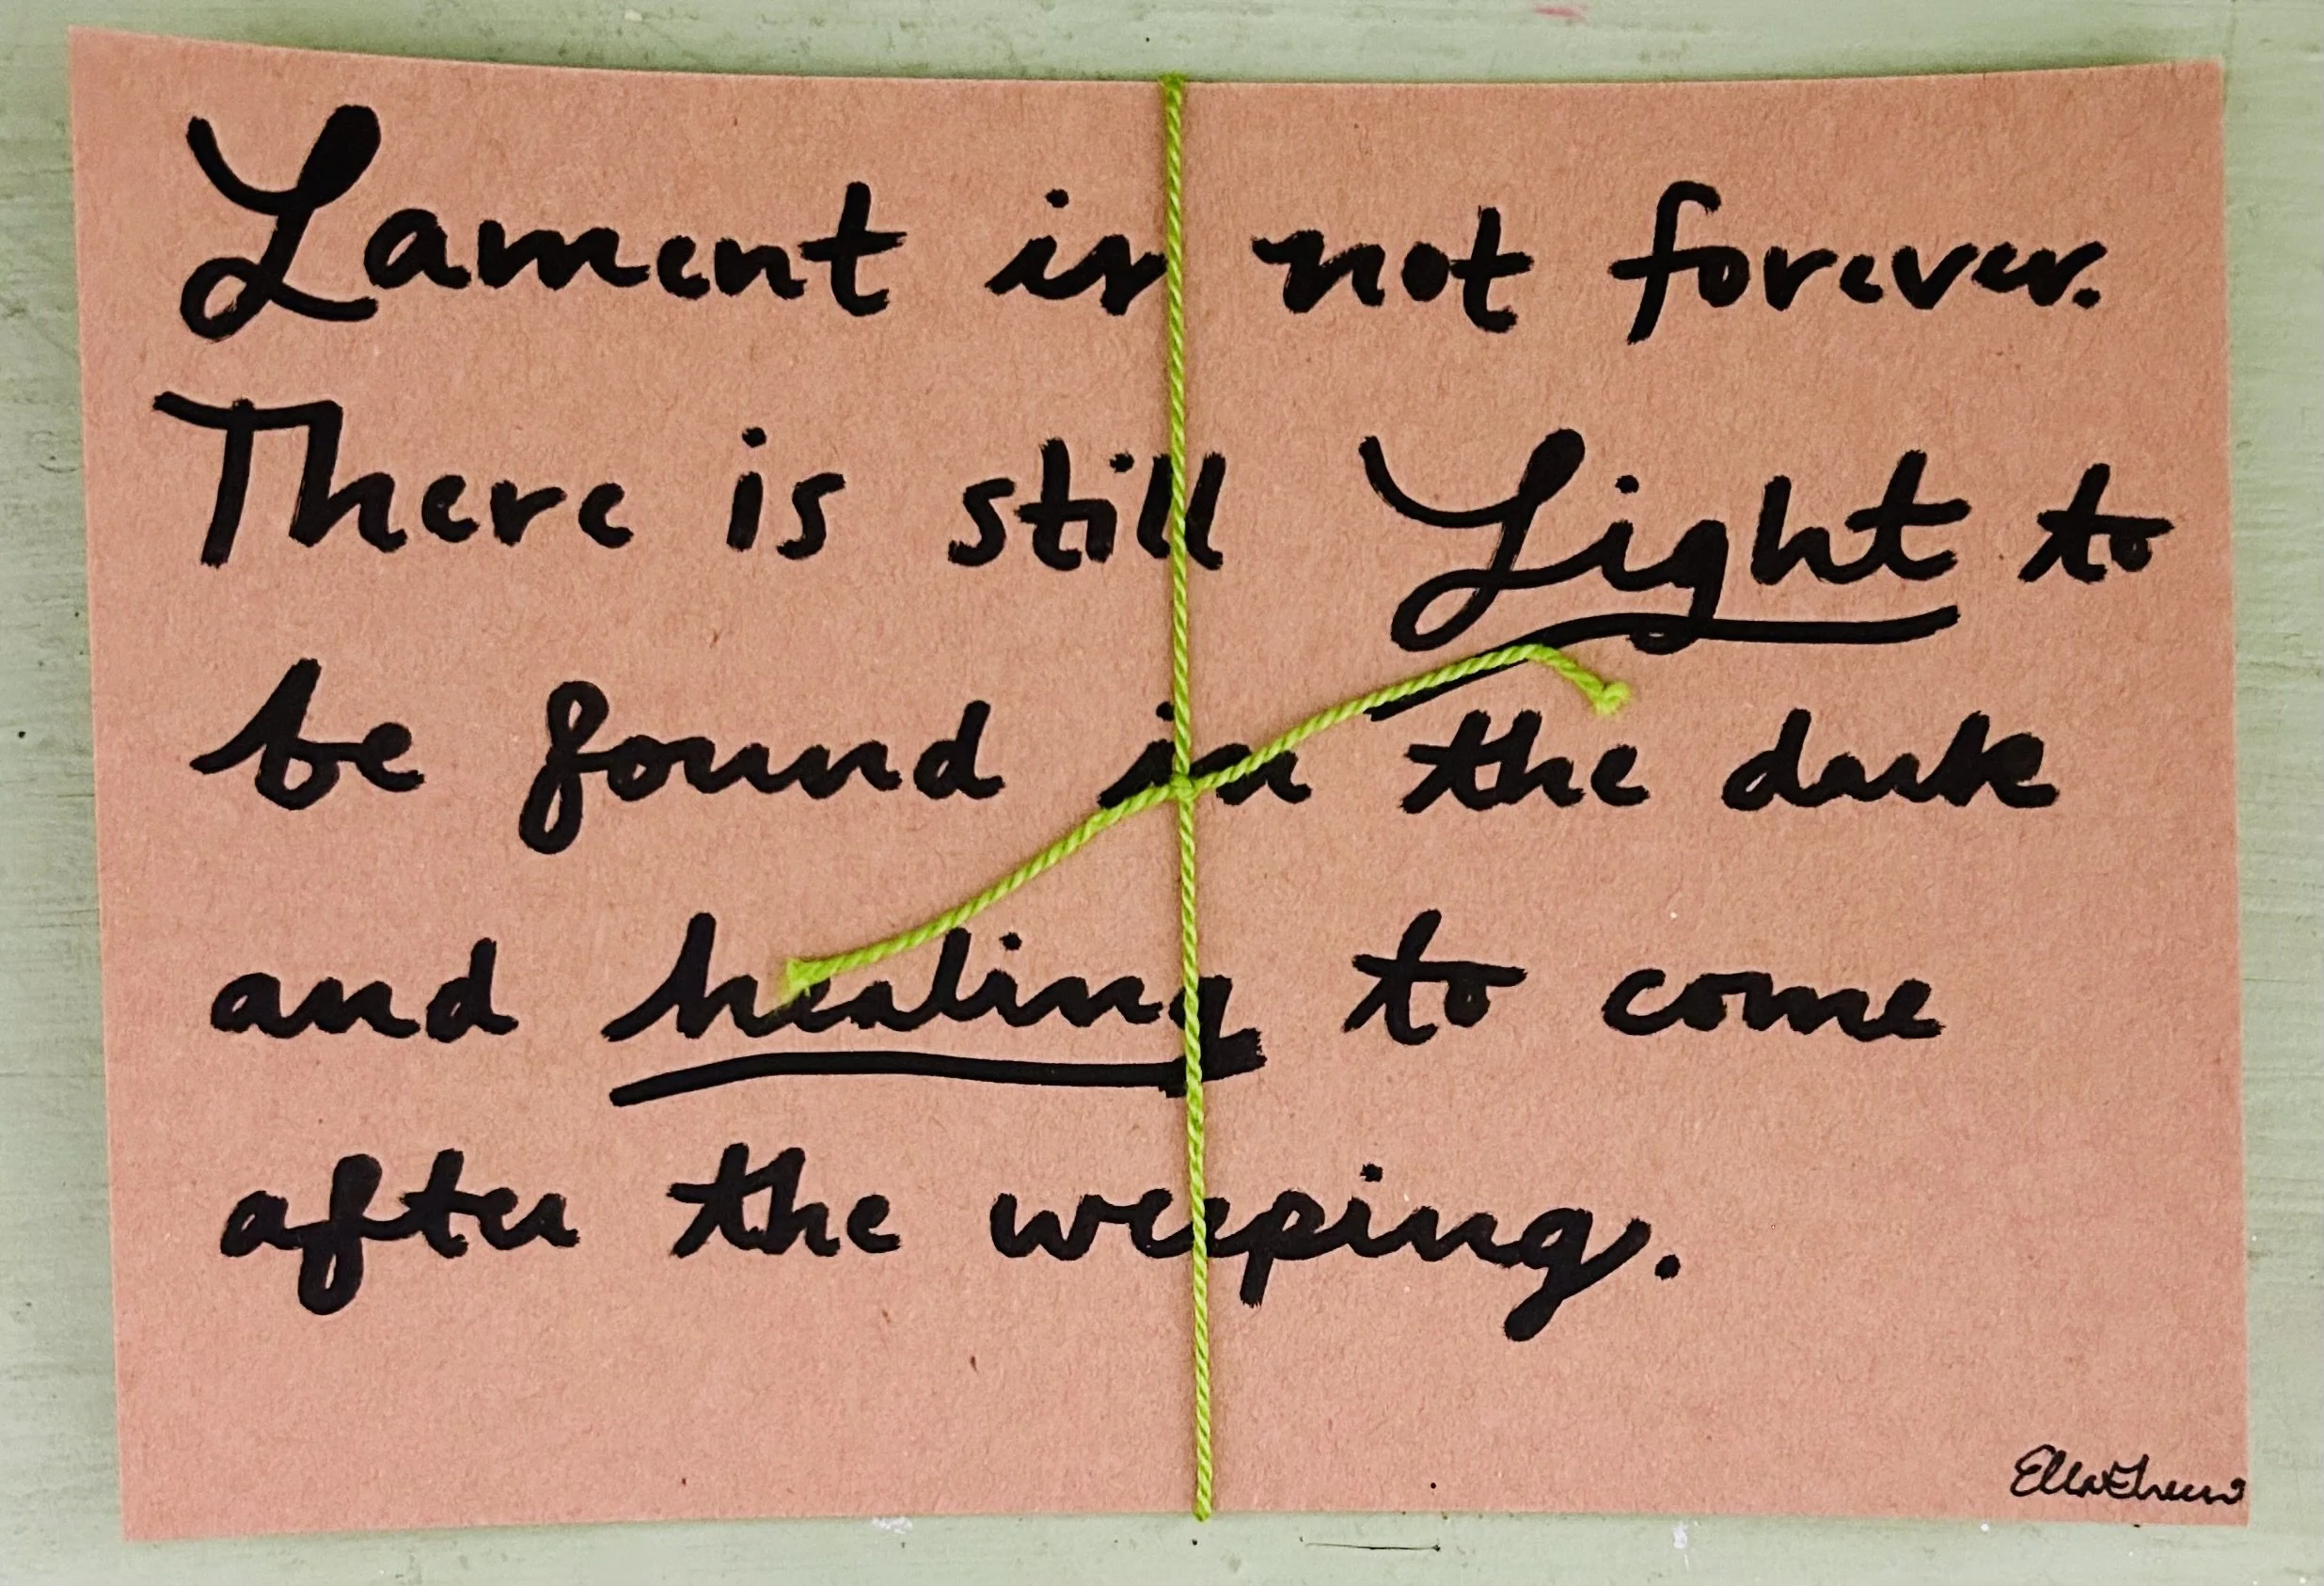 Lament is not forever.
There is still Light to
be found in the dark
and healing to come
after the weeping.